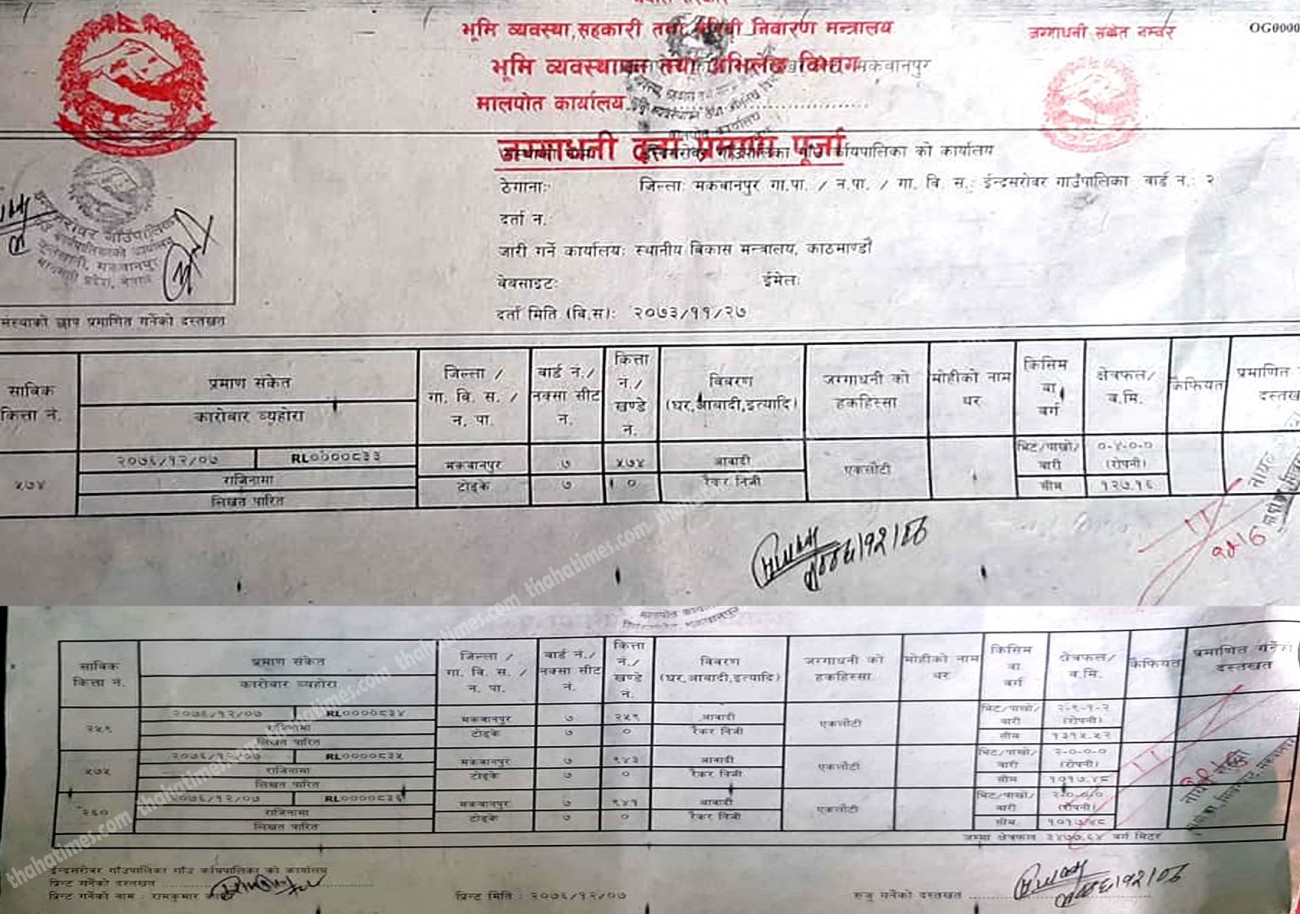 भूमि व्यवस्था,सहकारी तथा गरिबी निवारण मन्त्रालय
जग्गाधनी संकेत नम्बर
OG0000
भूमि व्यवस्थापन तथा अभिलेख विभाग
मकवानपुर
मालपोत कार्यालय
जग्गाधनी दर्ता प्रमाण पूर्जा
गाउँपालिका गाउँ कार्यपालिका को कार्यालय
ठेगानाः जिल्लाः मकवानपुर गा.पा. / न.पा. / गा. वि. स.: ईन्द्रसरोवर गाउँपालिका वार्ड नं.: २
दर्ता नं.:
जारी गर्ने कार्यालयः स्थानीय विकास मन्त्रालय, काठमाण्डौ
वेबसाइटः ईमेलः
दर्ता मिति (वि.स): २०७३/११/२७
संस्थाको छाप प्रमाणित गर्नेको दस्तखत
साविक कित्ता नं.
प्रमाण संकेत
कारोवार व्यहोरा
जिल्ला / गा. वि. स. / न. पा.
वार्ड नं./ नक्सा सीट नं.
कित्ता नं./ खण्डे नं.
विवरण (घर,आवादी,इत्यादि)
जग्गाधनी को हकहिस्सा
मोहीको नाम थर
किसिम वा वर्ग
क्षेत्रफल/ व.मि.
कैफियत
प्रमाणित
दस्तखत
५७४
२०७६/१२/०७ RL0000833
राजिनामा
लिखत पारित
मकवानपुर ७ ५७४ आवादी एकलौटी भिट/पाखो/बारी ०-४-०-० (रोपनी)
टोड्के ७ ० रैकर निजी सीम १२७.१६
साविक कित्ता नं.
प्रमाण संकेत
कारोवार व्यहोरा
जिल्ला / गा. वि. स. / न. पा.
वार्ड नं./ नक्सा सीट नं.
कित्ता नं./ खण्डे नं.
विवरण (घर,आवादी,इत्यादि)
जग्गाधनी को हकहिस्सा
मोहीको नाम थर
किसिम वा वर्ग
क्षेत्रफल/ व.मि.
कैफियत
प्रमाणित गर्नेको दस्तखत
२५९
२०७६/१२/०७ RL0000834
राजिनामा
लिखत पारित
मकवानपुर ७ २५९ आवादी एकलौटी भिट/पाखो/बारी २-९-१-२ (रोपनी)
टोड्के ७ ० रैकर निजी सीम १३१५.५२
५७५
२०७६/१२/०७ RL0000835
राजिनामा
लिखत पारित
मकवानपुर ७ ९४३ आवादी एकलौटी भिट/पाखो/बारी २-०-०-० (रोपनी)
टोड्के ७ ० रैकर निजी सीम १०१७.४८
२६०
२०७६/१२/०७ RL0000836
राजिनामा
लिखत पारित
मकवानपुर ७ ९४१ आवादी एकलौटी भिट/पाखो/बारी २-०-०/० (रोपनी)
टोड्के ७ ० रैकर निजी सीम १०१७.४८
जम्मा क्षेत्रफल ३४७७.६४ वर्ग मिटर
ईन्द्रसरोवर गाउँपालिका गाउँ कार्यपालिका को कार्यालय
प्रिन्ट गर्नेको दस्तखत
प्रिन्ट गर्नेको नाम : रामकुमार
प्रिन्ट मिति : २०७६/१२/०७
रुजु गर्नेको दस्तखत
thahatimes.com thahatimes.com thahatimes.com thahatimes.com